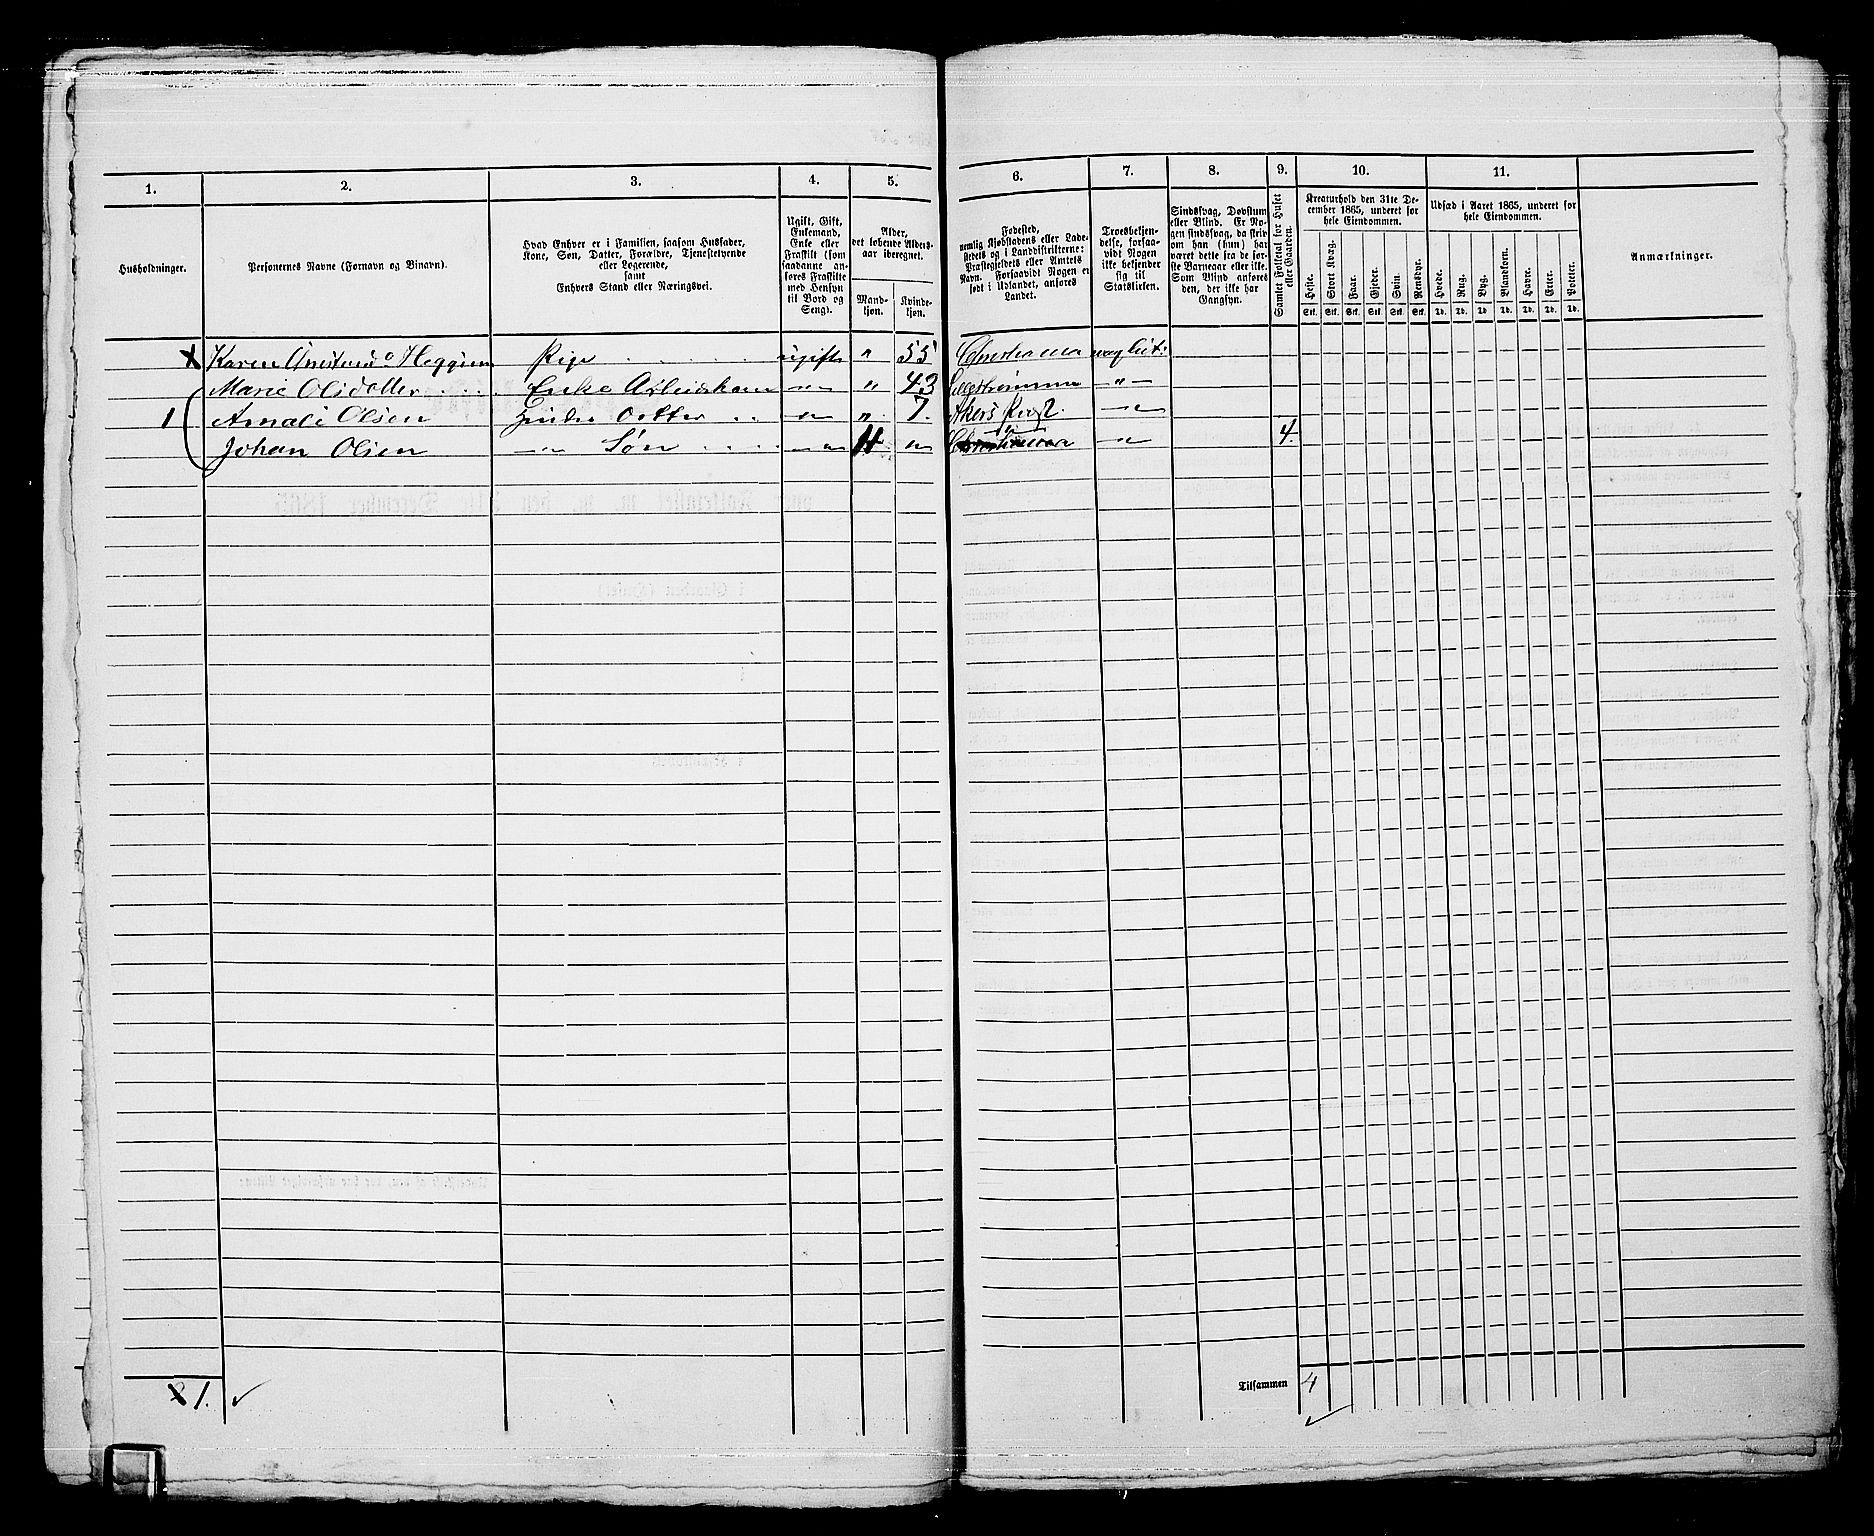 1. 2. 3. 4. 5. 6. 7. 8. 9. 10. 11.
Husholdninger.
Personernes Navne (Fornavn og Binavn).
Hvad Enhver er i Familien, saasom Husfader,
Kone, Søn, Datter, Forældre, Tjenestetyende
eller Logerende,
samt
Enhvers Stand eller Næringsvei.
Ugift, Gift,
Enkemand,
Enke eller
Fraskilt (som
saadanne an-
føres Fraskilte
med Hensyn
til Bord og
Seng).
Alder,
det løbende Alders-
aar iberegnet.
Mand-
kjøn.
Kvinde-
kjøn.
Fødested,
nemlig Kjøbstadens eller Lade-
stedets og i Landdistrikterne:
Præstegjeldets eller Amtets
Navn. Forsaavidt Nogen er
født i Udlandet, anføres
Landet.
Troesbekjen-
delse, forsaa-
vidt Nogen
ikke bekjender
sig til
Statskirken.
Sindssvag, Døvstum
eller Blind. Er No-
gen sindssvag, da skriv
om han (hun) har
været dette fra de før-
ste Barneaar eller ikke.
Som Blind anføres
den, der ikke har
Gangsyn.
Samlet Folketal for Huset
eller Gaarden.
Kreaturhold den 31te De-
cember 1865, underet for
hele Eiendommen.
Heste. Stort Kvæg. Faar. Gjeder. Svin. Rensdyr.
Stk. Stk. Stk. Stk. Stk. Stk.
Udsæd i Aaret 1865, underet for
hele Eiendommen.
Hvede. Rug. Byg. Blandkorn. Havre. Erter. Poteter.
Td. Td. Td. Td. Td. Td. Td.
Anmærkninger.
X Karen Heggsen Pige ugift " 55
Marie Olsdatter Enke 43 — " —
1 Amali Olsen Datter " 7. Akers
Johan Olsen Søn 4.
Tilsammen 4
1.